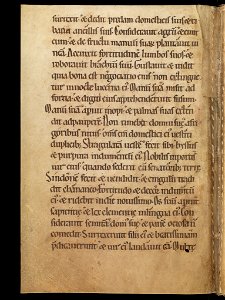 surrexit & dedit predam domesticis suis & ci
baria ancillis suis. Considerauit agrum & emit
eum: de fructu manuum suarum plantauit ui
neam. Accinxit fortitudine lumbos suos &
roborauit brachium suum. Gustauit & uidit
quia bona est negociatio eius: non extingue
tur in nocte lucerna eius. Manum suam misit ad
fortia: & digiti eius apprehenderunt fusum.
Manum suam aperuit inopi: & palmas suas exten
dit ad pauperem. Non timebit domui sue a fri
goribus niuis: omnes enim domestici eius uestiti
duplicibus. Stragulatam uestem fecit sibi: byssus
& purpura indumentum eius. Nobilis in portis
uir eius: quando sederit cum senatoribus terre.
Sindonem fecit & uendidit: & cingulum tradi
dit chananeo. Fortitudo & decor indumentum
eius: & ridebit in die nouissimo. Os suum aperuit
sapientie: & lex clementie in lingua eius. Con
siderauit semitas domus sue: & panem otiosa non
comedit. Surrexerunt filii eius & beatissimam
predicauerunt: & uir eius & laudauit eam. Multe